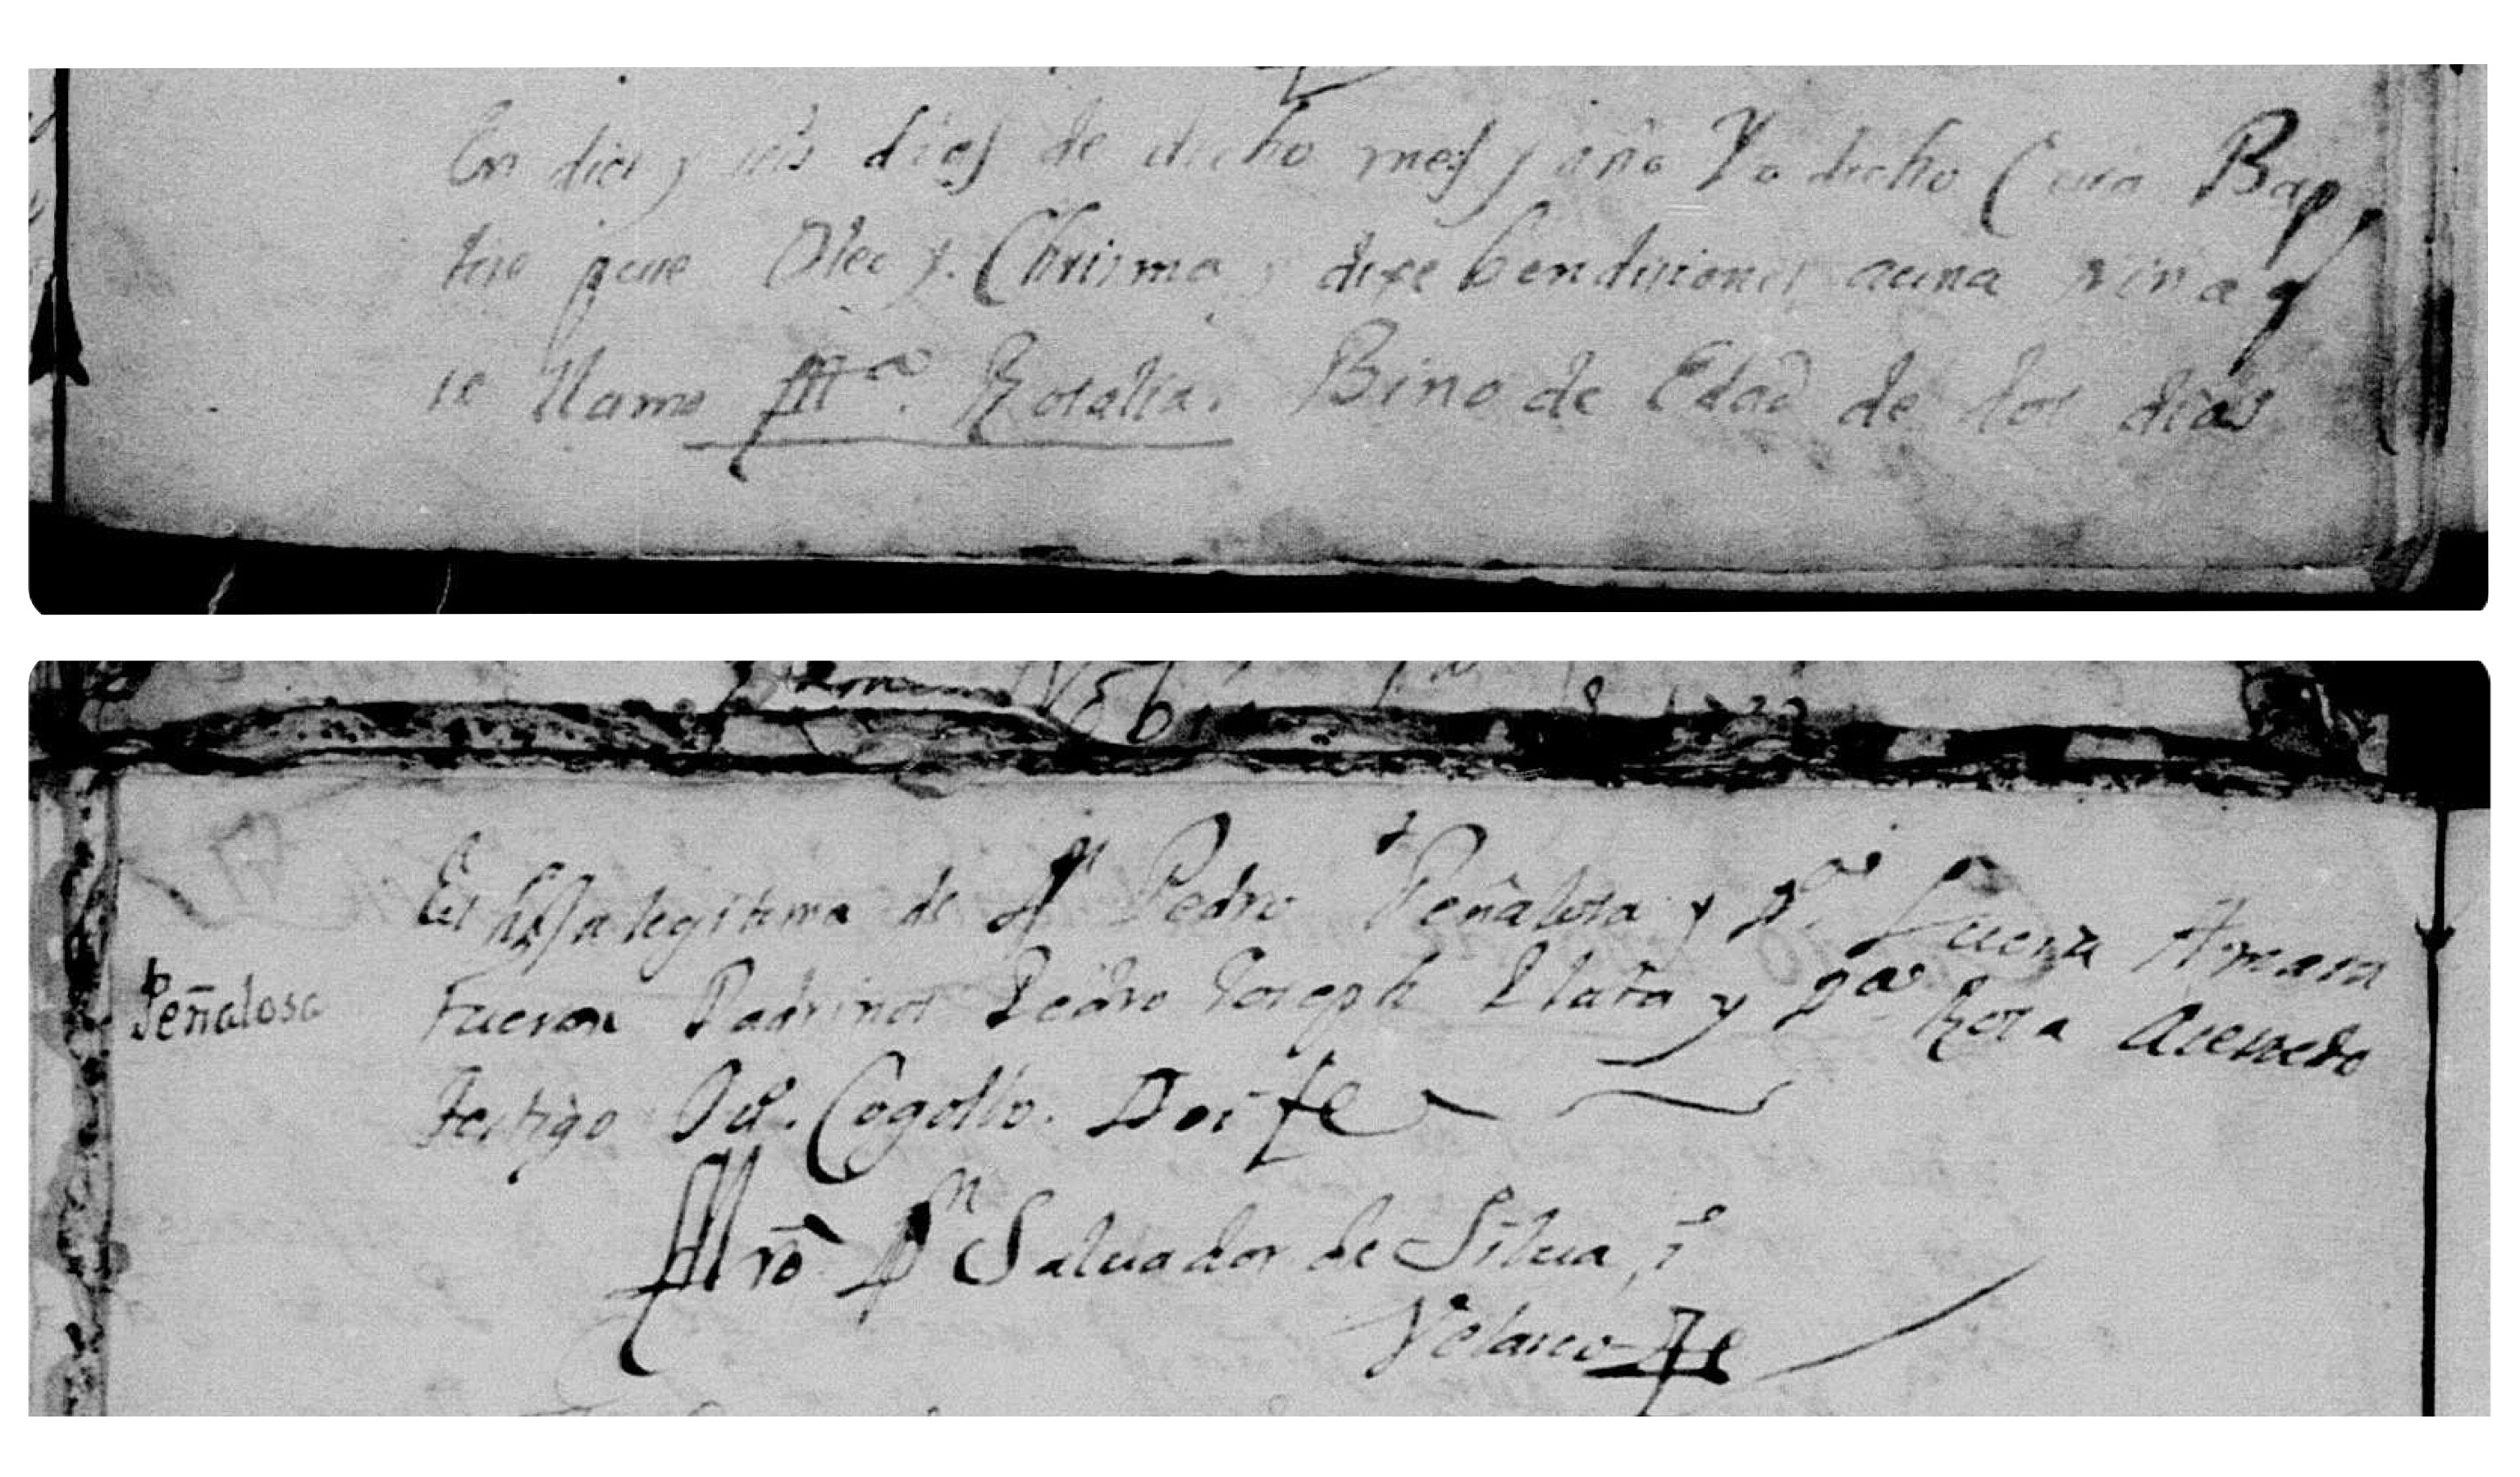 En diez y seis dies de dicho mes y año Yo dicho Cura Bap
tise puse Oleo y Chrisma y dixe bendiciones a una nina q
se llamo Mª. Rosalia. Bino de Edad de dos dias
Es hija legitima de Dn Pedro Peñalosa y Dª. Lucia
Peñalosa
Fueron Padrinos Pedro Joseph Plata y Dª. Rosa Acevedo
testigo Cogollo. Doi fe
Mro Dn Salvador de Silva, i
Velasco